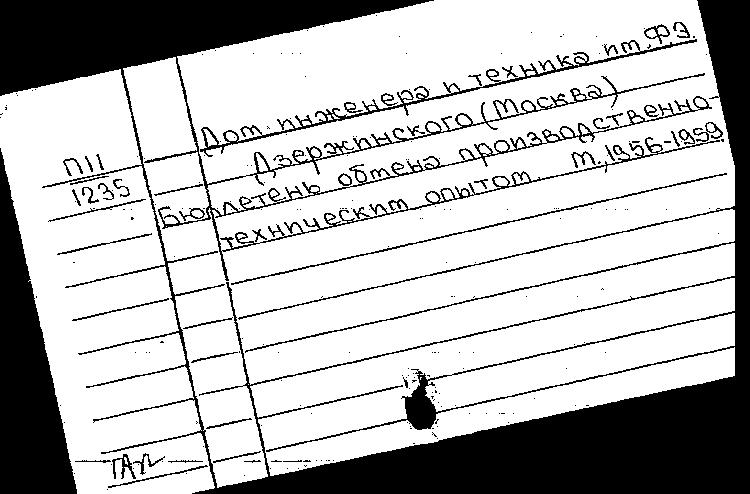 Дом инженера и техника им. Ф.Э.
Дзержинского (Москва)
П11
1235
Бюллетень обмена производственно-
техническим опытом. М., 1956-1959